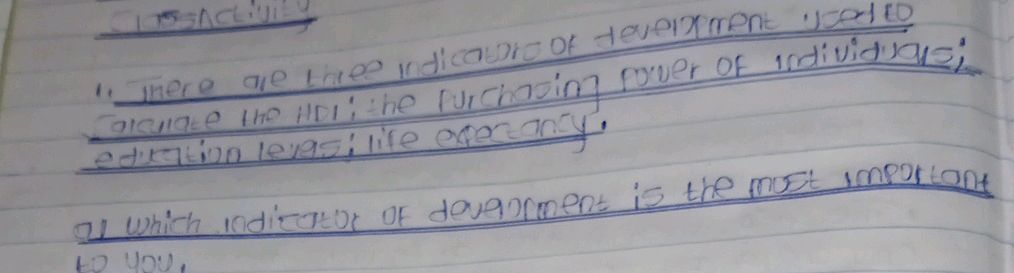 Class Activity
1. There are three indicators of development used to
calculate the HDI; the purchasing power of individuals;
education levels; life expectancy.
a) Which indicator of development is the most important
to you.